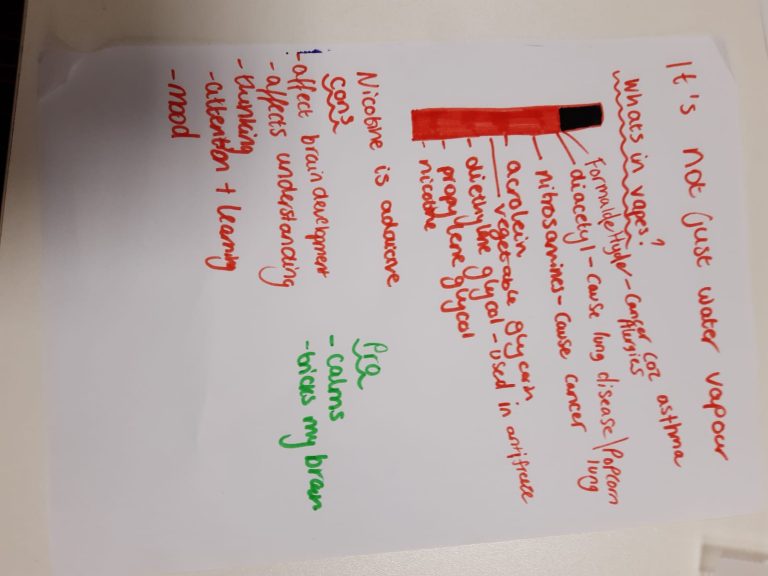 It's not just water vapour
Whats in vapes?
FormaldeHyder - cancer coz asthma
Allurgies
diacetyl - cause lung disease/Popcorn
lung
nitrosamines - cause cancer
acrolein
vegetable glycerin
diethylene glycol - used in antifreeze
propylene glycol
nicotine
Nicotine is
cons
- affect brain development
- affects understanding
- thinking
- attention + learning
- mood
Pro
- calms
- tricks my brain